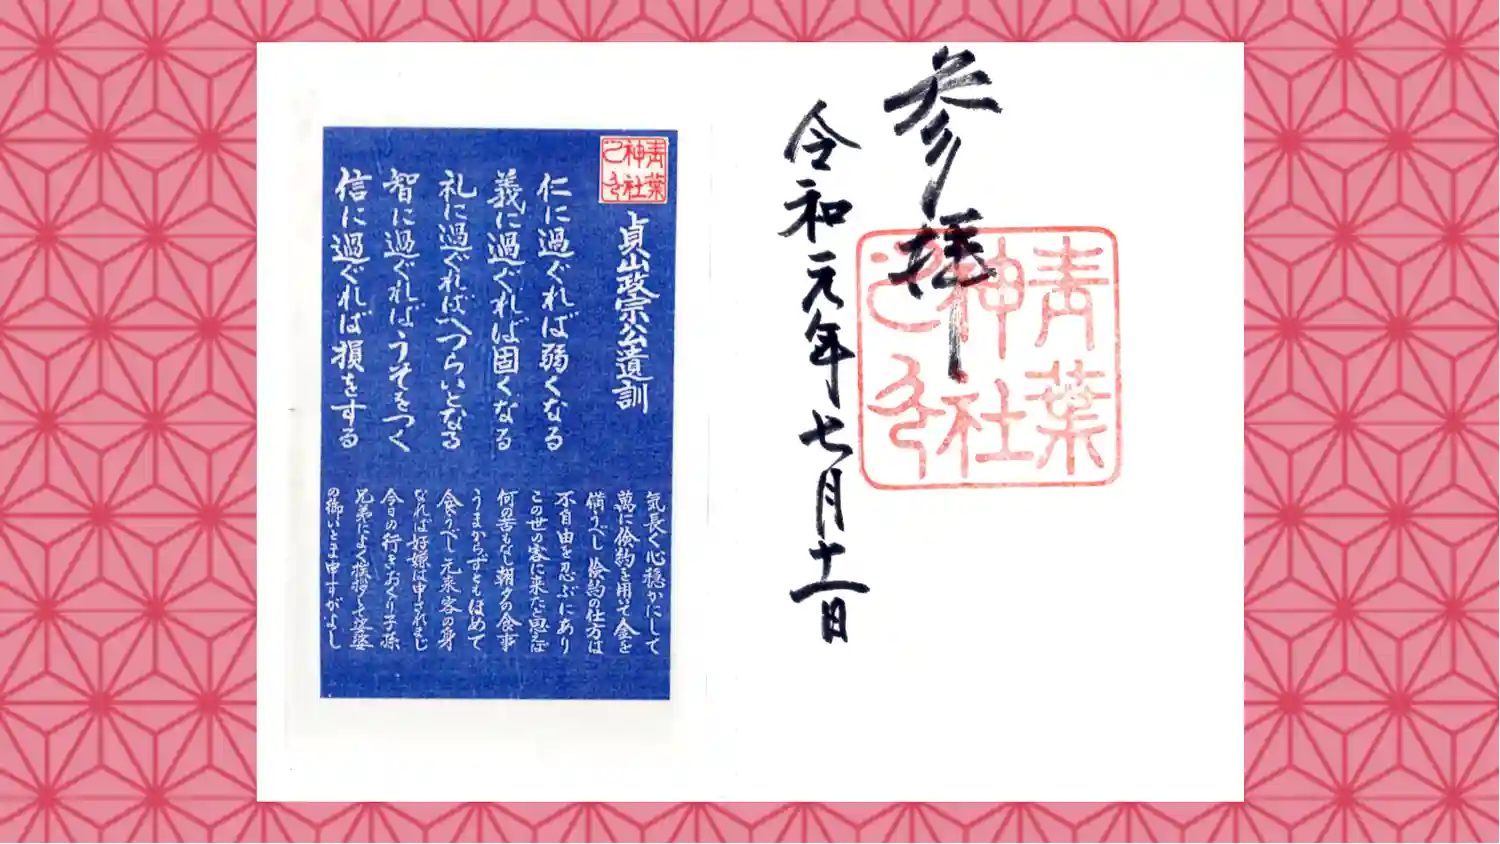 参拝
令和元年七月十一日
青葉
神社
之印
青葉
神社
之印
貞山政宗公遺訓
仁に過ぐれば弱くなる
義に過ぐれば固くなる
礼に過ぐればへつらいとなる
智に過ぐればうそをつく
信に過ぐれば損をする
気長く心穏かにして
萬に倹約を用いて金を
備うべし 倹約の仕方は
不自由を忍ぶにあり
この世の客に来たと思えば
何の苦もなし朝夕の食事
うまからずともほめて
食うべし 元来客の身
なれば好嫌は申されまじ
今日の行きおくり子孫
兄弟によく挨拶して娑婆
の御いとま申すがよし